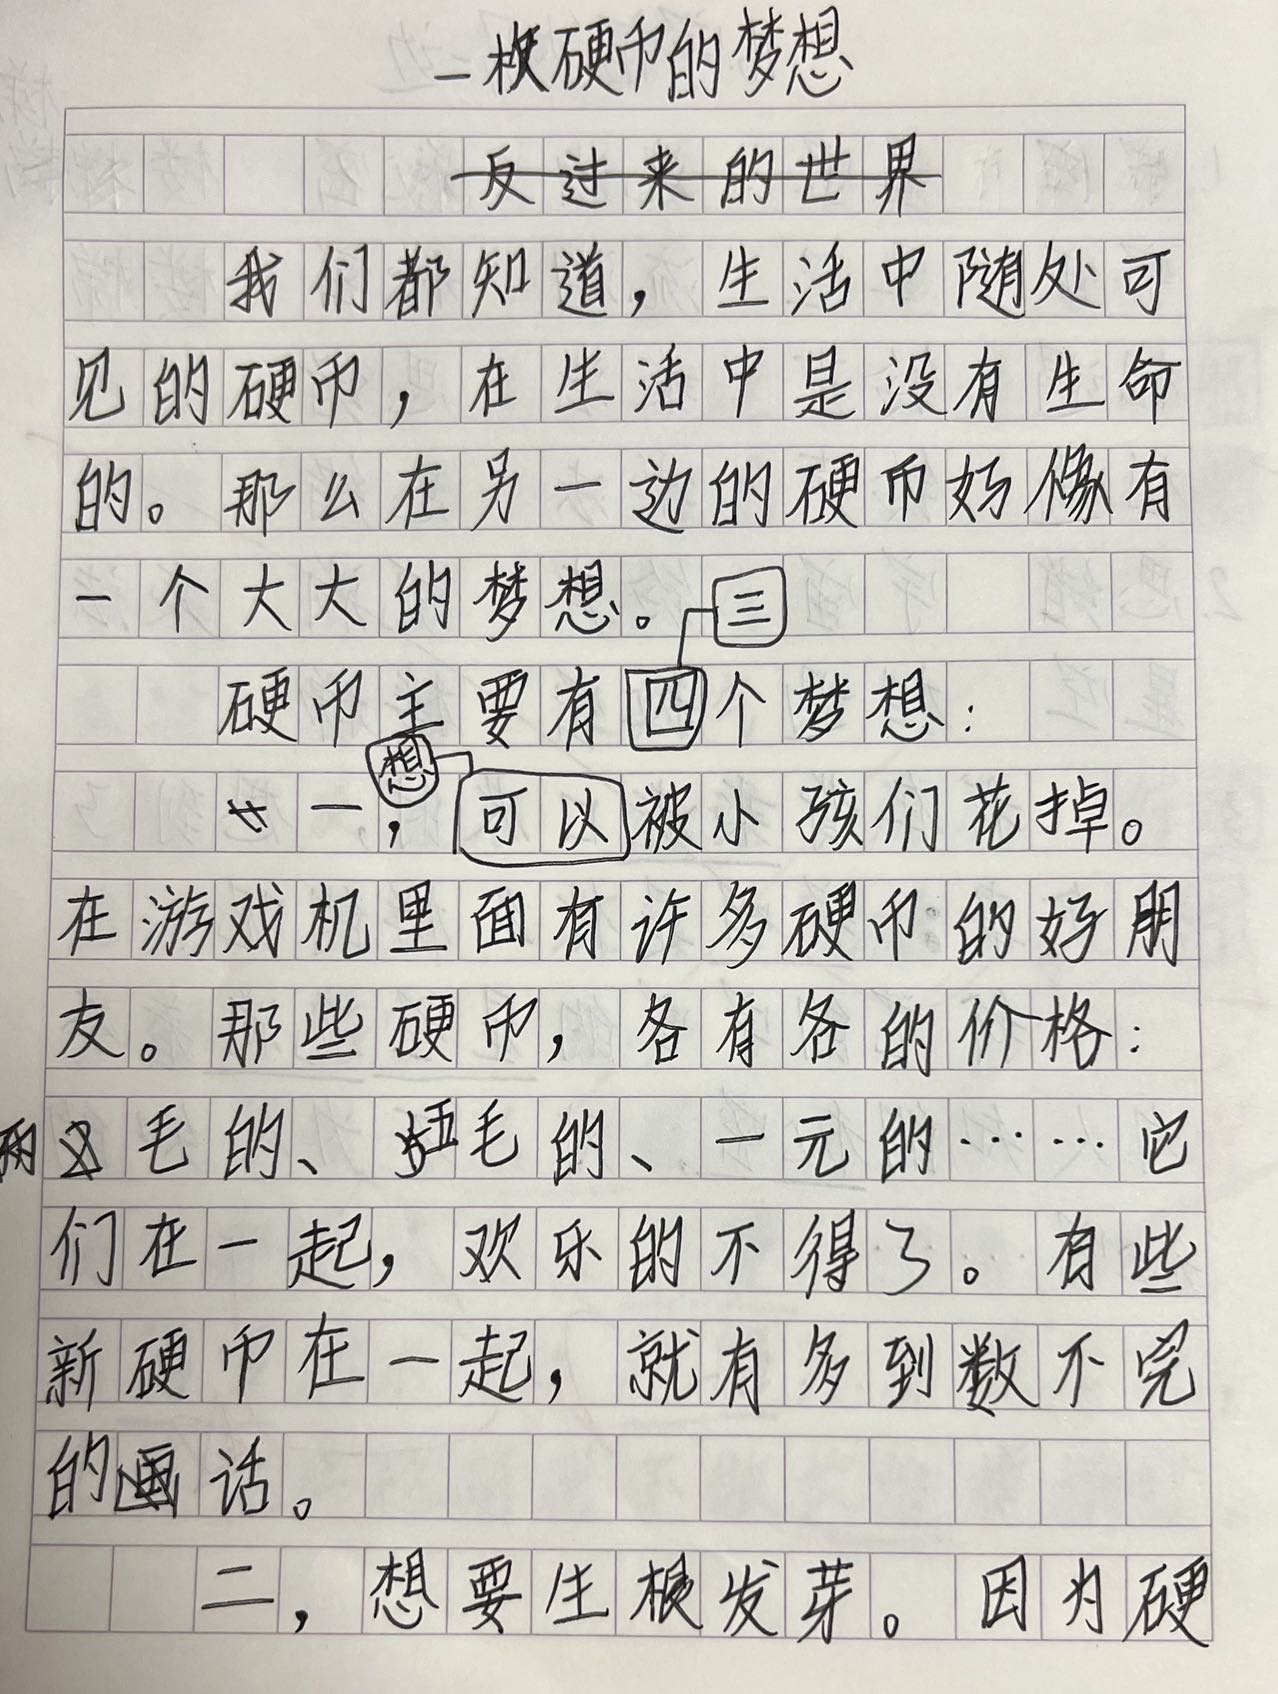 一枚硬币的梦想
反过来的世界
我们都知道，生活中随处可
见的硬币，在生活中是没有生命
的。那么在另一边的硬币好像有
一个大大的梦想。三
硬币主要有四个梦想：
想
一，可以被小孩们花掉。
在游戏机里面有许多硬币的好朋
友。那些硬币，各有各的价格：
两毛的、五毛的、一元的……它
们在一起，欢乐的不得了。有些
新硬币在一起，就有多到数不完
的话。
二，想要生根发芽。因为硬